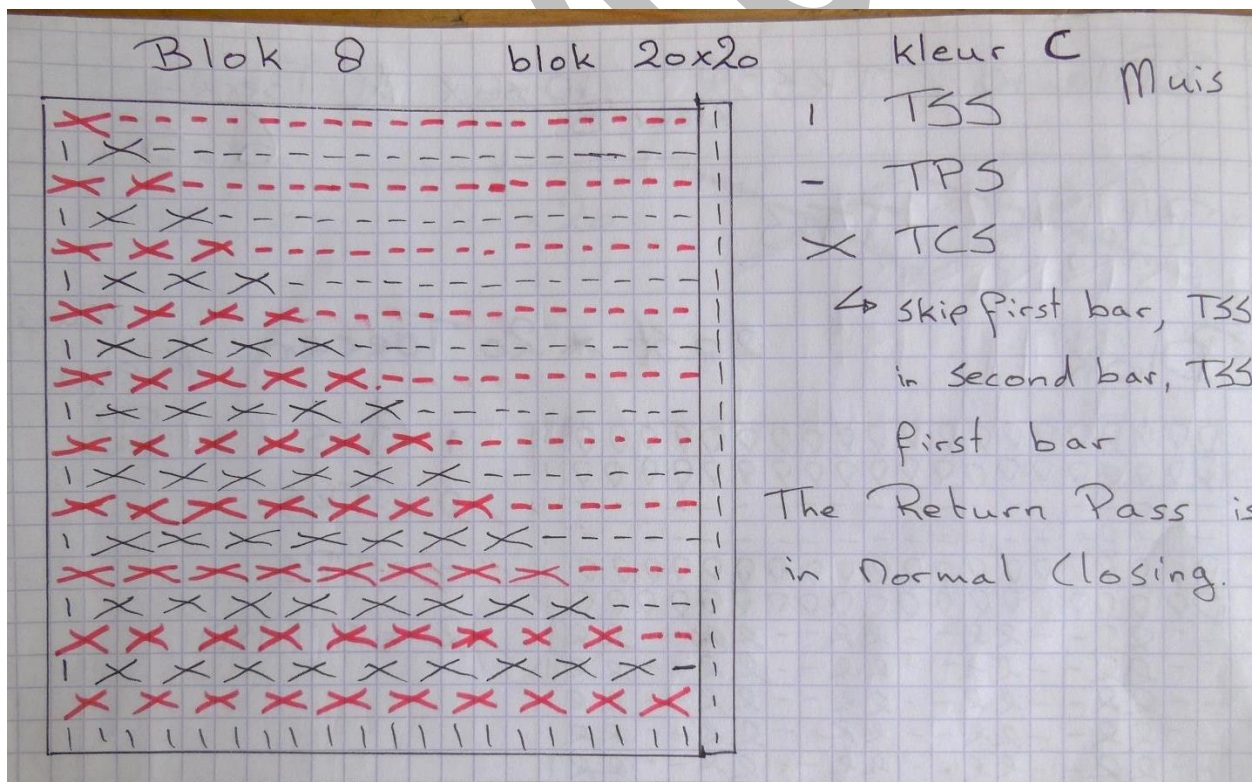 Blok 8 blok 20x20 kleur C
Muis
| TSS
- TPS
X TCS
↳ skip first bar, TSS
in second bar, TSS
first bar
The Return Pass is
in normal closing.